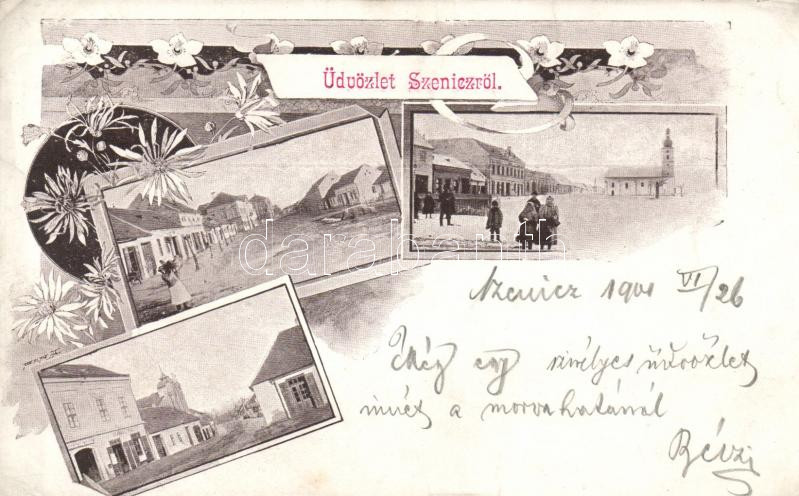 Üdvözlet Szeniczről.
darabanth
Szenicz 1901 VI/26
Még egy szivélyes üdvözlet
a morva határnál
Révzi